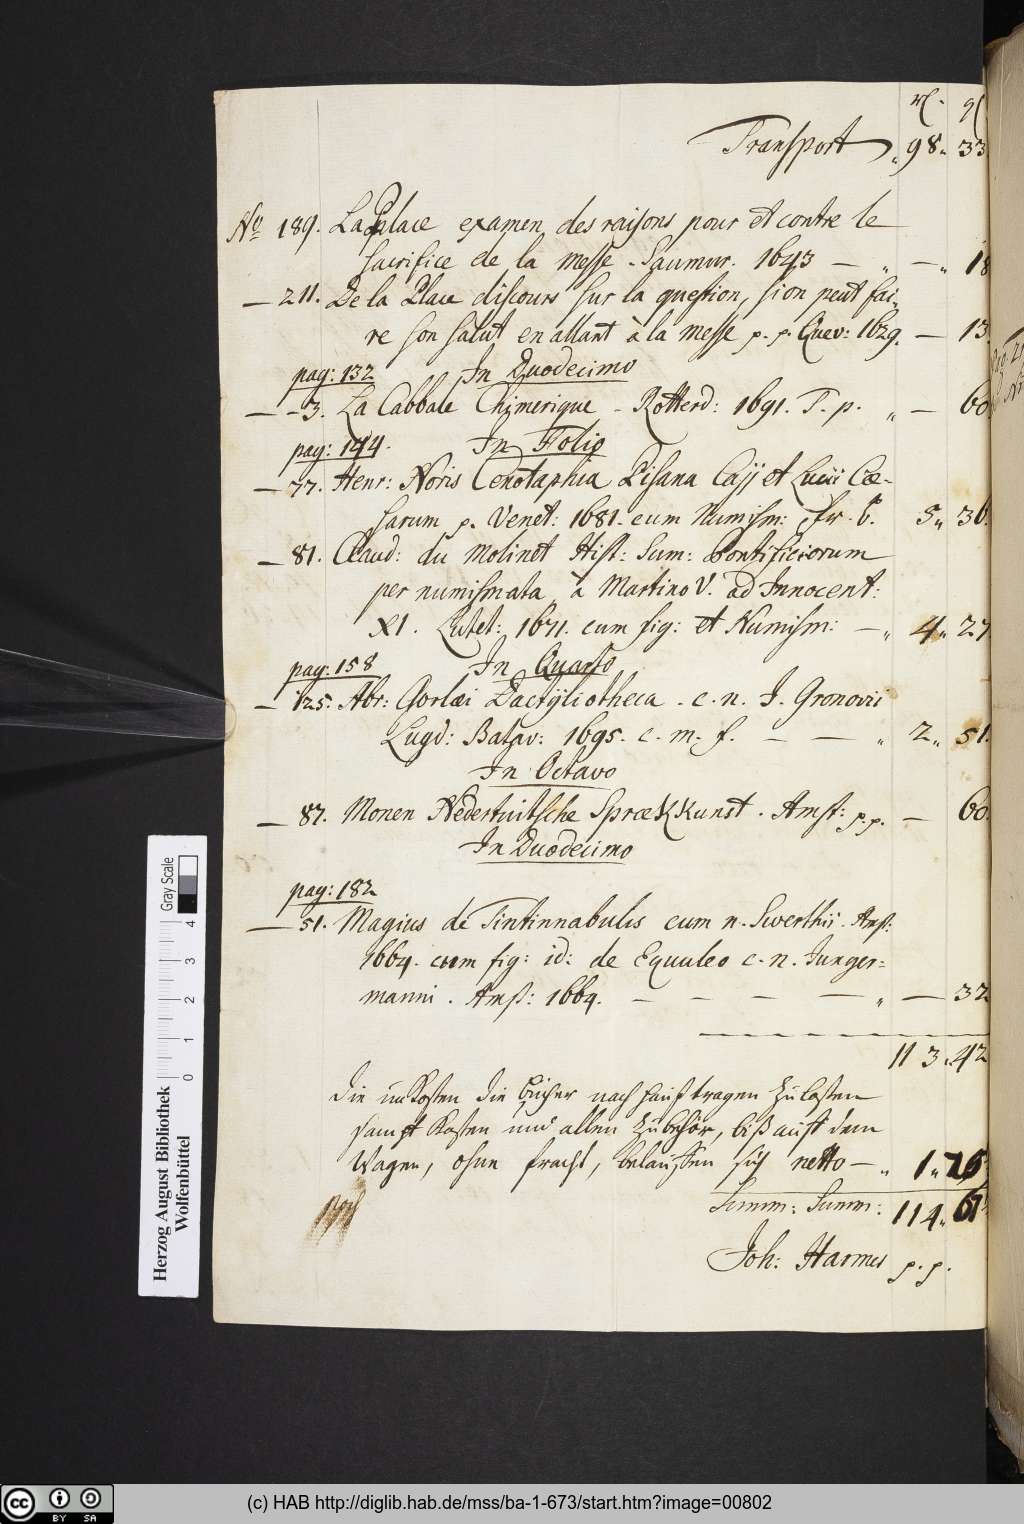 rl. gl
Transport „ 98 „ 33
No 189. La Place examen des raisons pour et contre le
sacrifice de la messe. Saumur. 1643 — „ — „ 18
— 211. De la Place discours sur la question, si on peut fai-
re son salut en allant à la messe p. p. Quev: 1629. — 13.
pag: 132 In Duodecimo
— - 3. La Cabbale Chimerique - Rotterd: 1691. T. p. „ — 60
pag: 144. In Folio
— 77. Henr: Noris Cenotaphia Pisana Caij et Lucii Cæ-
sarum p. Venet: 1681. cum Numism: fr. b. 5 „ 36.
— 81. Claud: du Molinet Hist: Sum: Pontificiorum
per numismata à Martino V. ad Innocent:
XI. Lutet: 1671. cum fig: et Numism: — „ 4 „ 27
pag: 158 In Quarto
— 125. Abr: Gorlæi Dactyliotheca . c. n. J. Gronovii
Lugd: Batav: 1695. c. m. f. — — „ 2 „ 51.
In Octavo
— 87. Monen Nedertuitsche Spraekkunst . Amst: p. p. — 60.
In Duodecimo
pag: 182
— 51. Magius de Tintinnabulis cum n. Swerthii . Amst:
1664. cum fig: id: de Equuleo c. n. Junger=
manni . Amst: 1664. — — — — „ — 32
113. 42
Die unkosten die bücher nach hauß tragen zu laßen
sampt Kasten und allen Zubehör, biß auff dem
Wagen, ohne fracht, belauffen sich netto — „ 1 „
Summ: Summ: 114 „ 67
Joh: Harmes p. p.
Herzog August Bibliothek
Wolfenbüttel
0 1 2 3 4
Gray Scale
cc BY SA
(c) HAB http://diglib.hab.de/mss/ba-1-673/start.htm?image=00802